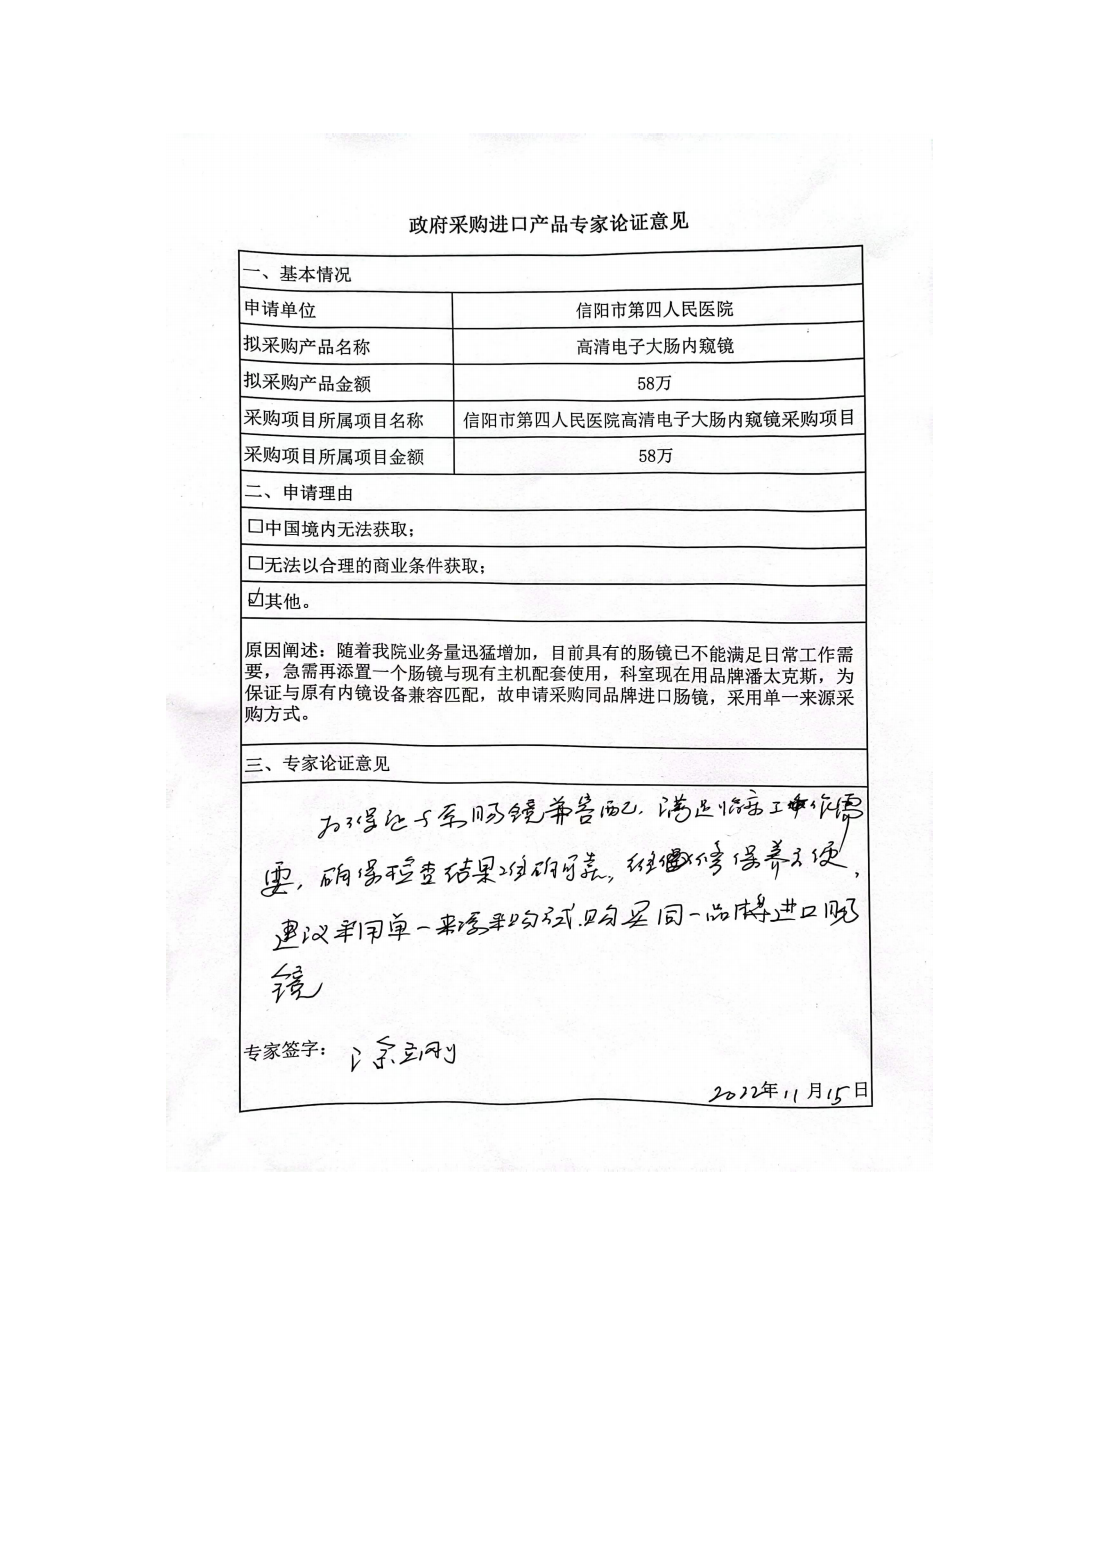 政府采购进口产品专家论证意见
一、基本情况
申请单位 信阳市第四人民医院
拟采购产品名称 高清电子大肠内窥镜
拟采购产品金额 58万
采购项目所属项目名称 信阳市第四人民医院高清电子大肠内窥镜采购项目
采购项目所属项目金额 58万
二、申请理由
☐中国境内无法获取；
☐无法以合理的商业条件获取；
☑其他。
原因阐述：随着我院业务量迅猛增加，目前具有的肠镜已不能满足日常工作需
要，急需再添置一个肠镜与现有主机配套使用，科室现在用品牌潘太克斯，为
保证与原有内镜设备兼容匹配，故申请采购同品牌进口肠镜，采用单一来源采
购方式。
三、专家论证意见
为保证与原肠镜兼容匹配，满足临床工作需
要，确保检查结果准确可靠，维修保养方便，
建议采用单一来源采购方式购买同一品牌进口肠
镜
专家签字： 涂立刚
2022年11月15日